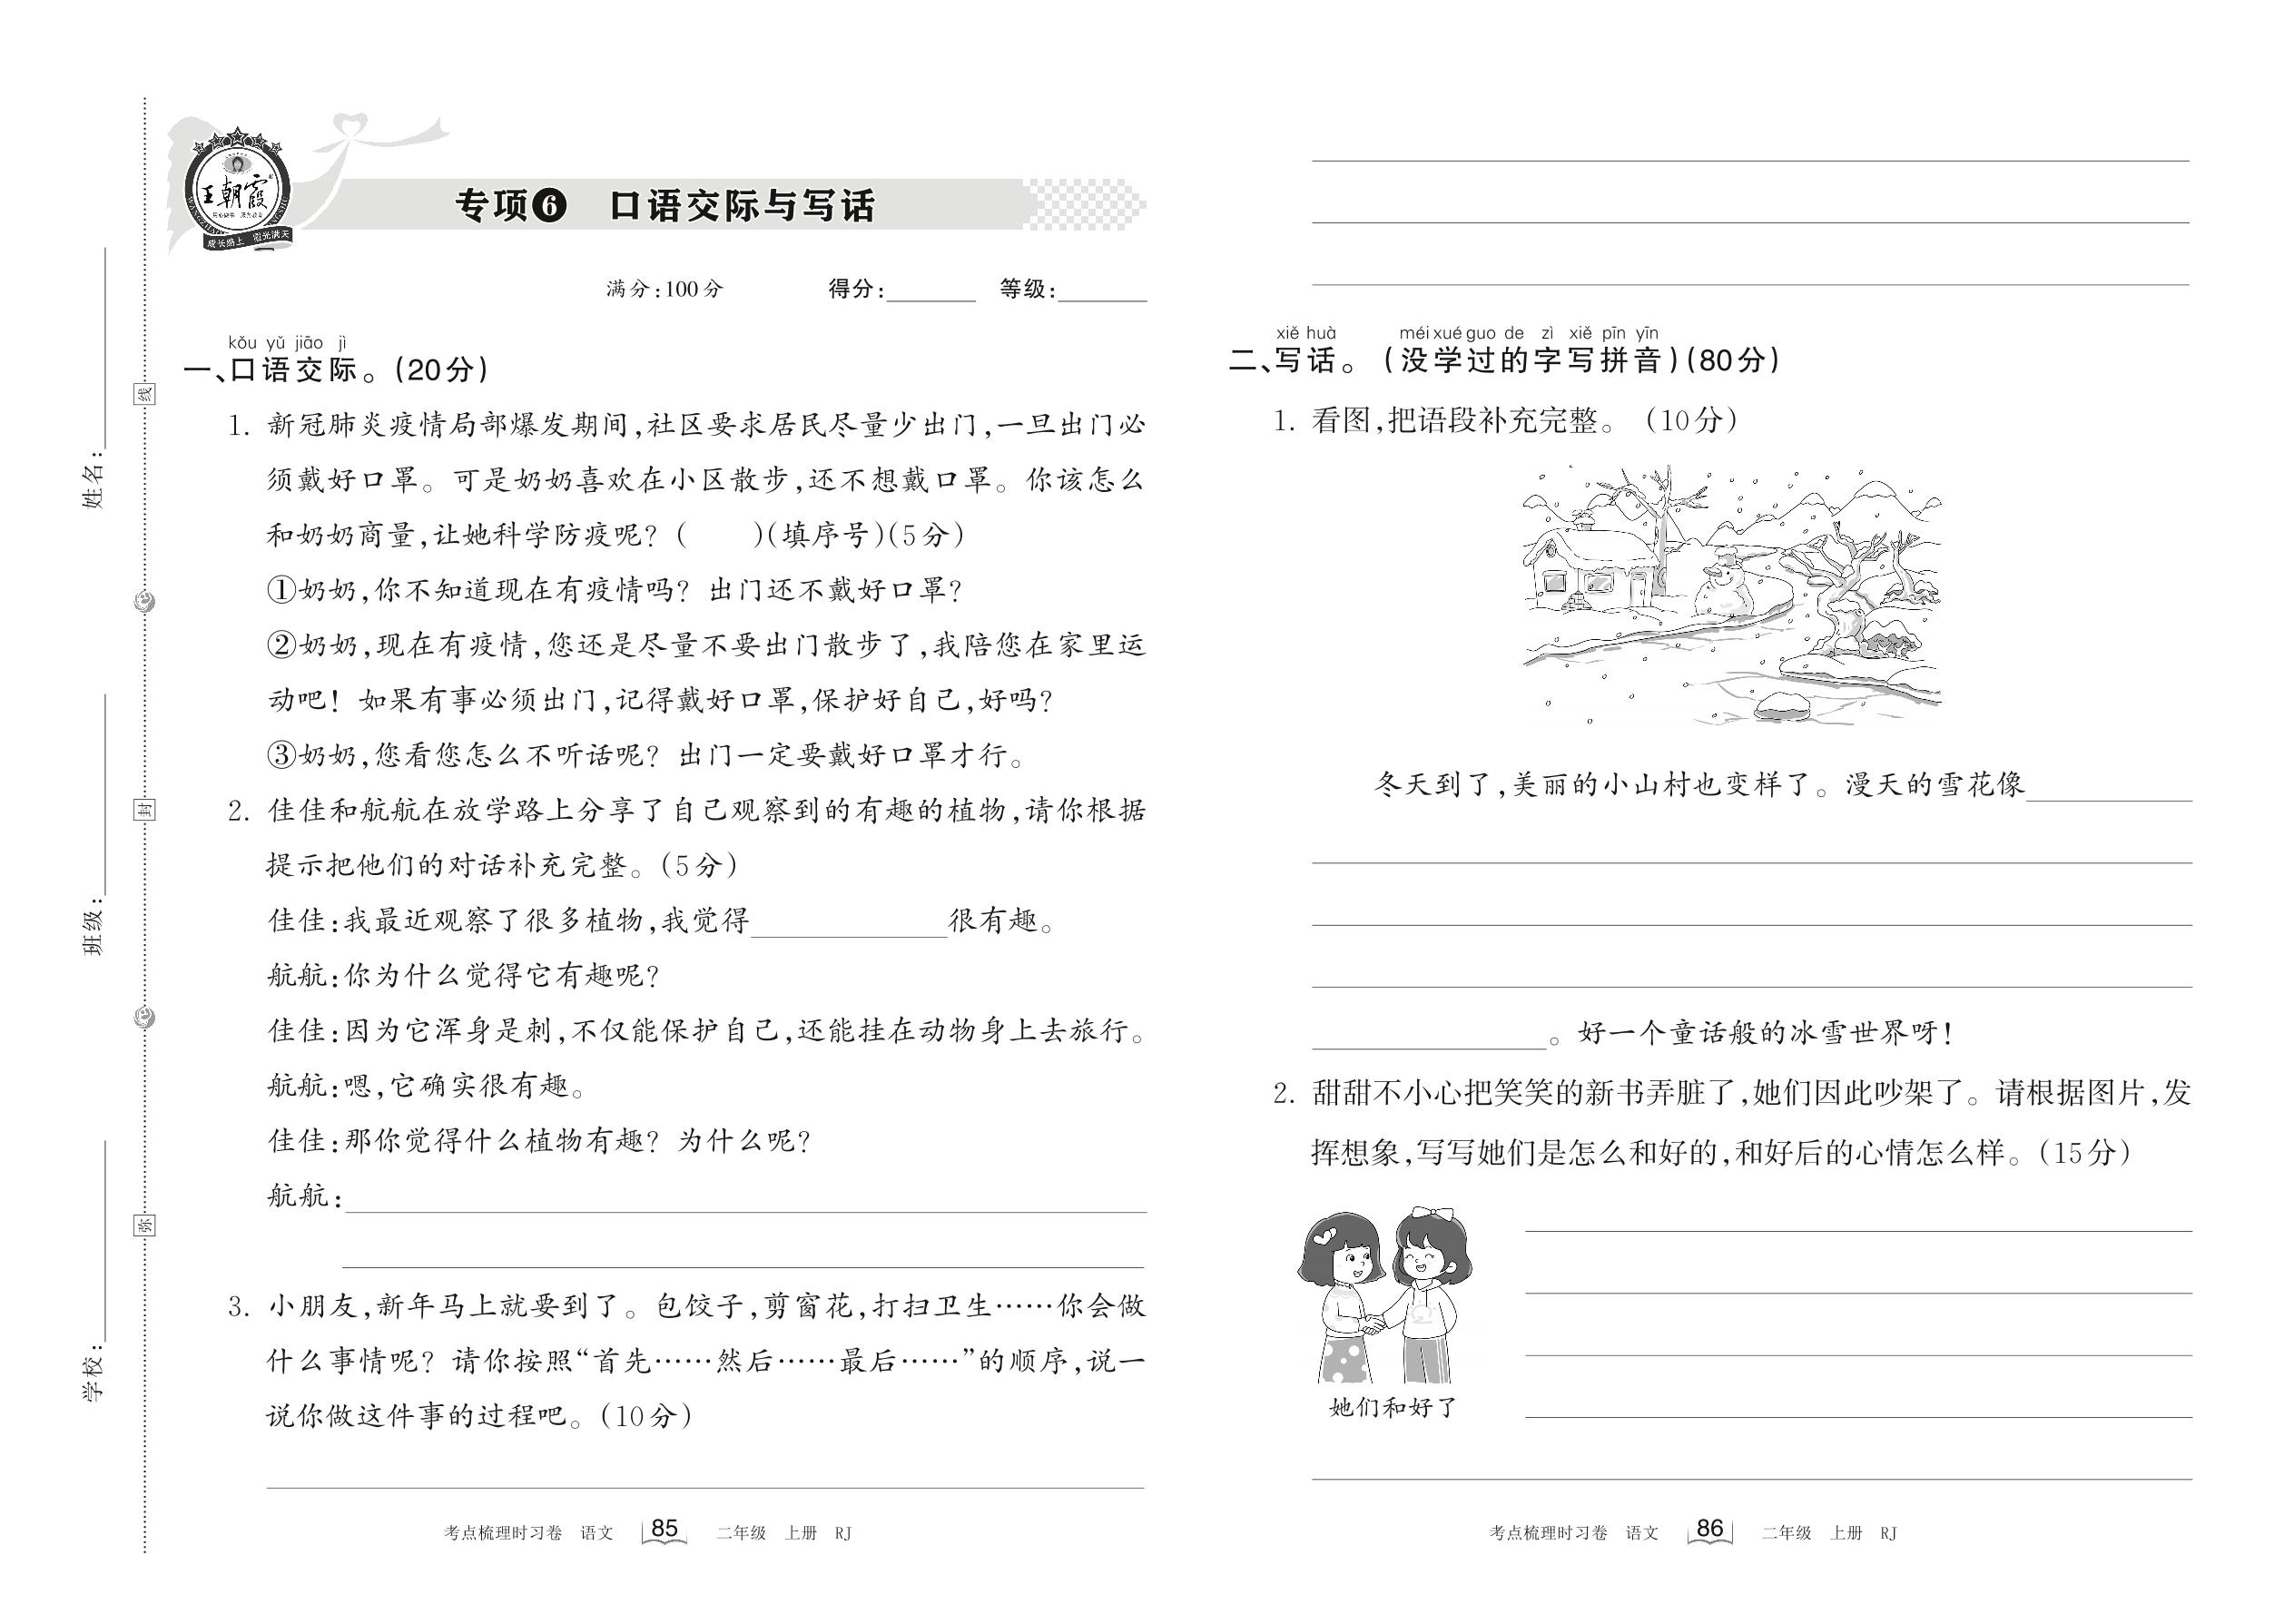 王朝霞
成长路上 霞光满天
专项6 口语交际与写话
满分:100分 得分: 等级:
kǒu yǔ jiāo jì
一、口语交际。(20分)
1. 新冠肺炎疫情局部爆发期间,社区要求居民尽量少出门,一旦出门必
须戴好口罩。可是奶奶喜欢在小区散步,还不想戴口罩。你该怎么
和奶奶商量,让她科学防疫呢?( )(填序号)(5分)
①奶奶,你不知道现在有疫情吗?出门还不戴好口罩?
②奶奶,现在有疫情,您还是尽量不要出门散步了,我陪您在家里运
动吧!如果有事必须出门,记得戴好口罩,保护好自己,好吗?
③奶奶,您看您怎么不听话呢?出门一定要戴好口罩才行。
2. 佳佳和航航在放学路上分享了自己观察到的有趣的植物,请你根据
提示把他们的对话补充完整。(5分)
佳佳:我最近观察了很多植物,我觉得 很有趣。
航航:你为什么觉得它有趣呢?
佳佳:因为它浑身是刺,不仅能保护自己,还能挂在动物身上去旅行。
航航:嗯,它确实很有趣。
佳佳:那你觉得什么植物有趣?为什么呢?
航航:
3. 小朋友,新年马上就要到了。包饺子,剪窗花,打扫卫生……你会做
什么事情呢?请你按照“首先……然后……最后……”的顺序,说一
说你做这件事的过程吧。(10分)
考点梳理时习卷 语文 85 二年级 上册 RJ
姓名:
班级:
学校:
线
封
弥
xiě huà méi xué guo de zì xiě pīn yīn
二、写话。(没学过的字写拼音)(80分)
1. 看图,把语段补充完整。(10分)
冬天到了,美丽的小山村也变样了。漫天的雪花像
。好一个童话般的冰雪世界呀!
2. 甜甜不小心把笑笑的新书弄脏了,她们因此吵架了。请根据图片,发
挥想象,写写她们是怎么和好的,和好后的心情怎么样。(15分)
她们和好了
考点梳理时习卷 语文 86 二年级 上册 RJ